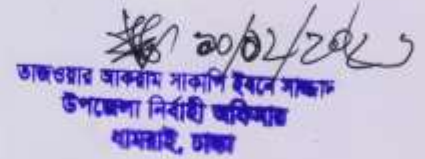 তাজওয়ার আকরাম সাকাপি ইবনে সাজ্জাদ
উপজেলা নির্বাহী অফিসার
ধামরাই, ঢাকা